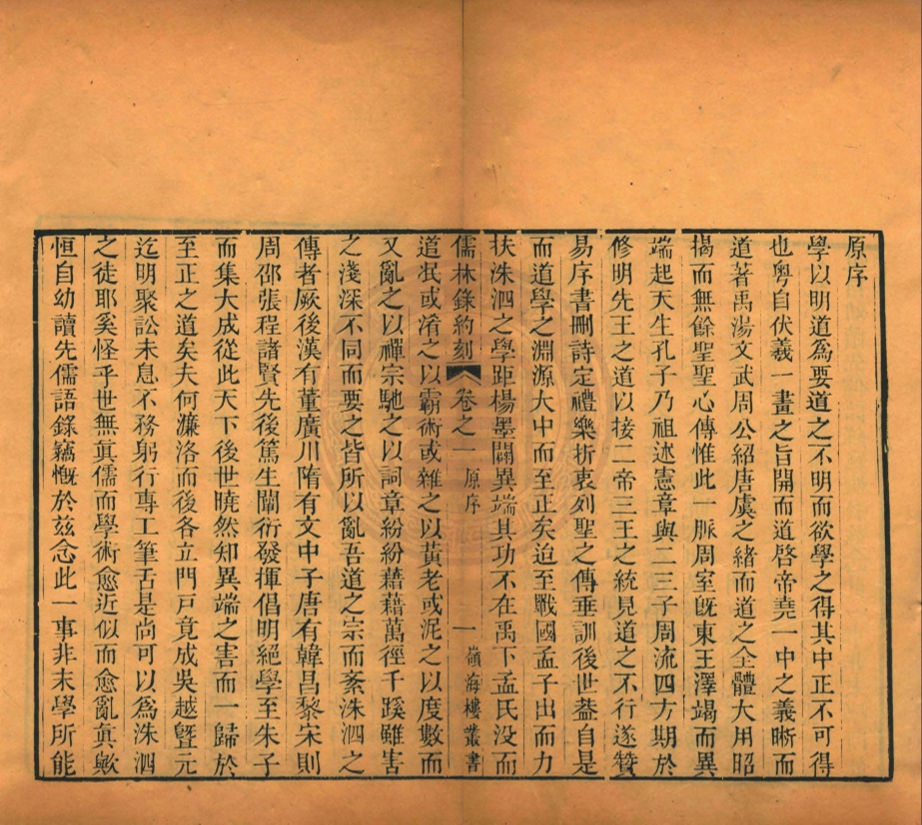 原序
學以明道爲要道之不明而欲學之得其中正不可得
也粤自伏羲一畫之旨開而道啓帝堯一中之義晰而
道著禹湯文武周公紹唐虞之緒而道之全體大用昭
揭而無餘聖聖心傳惟此一脈周室旣東王澤竭而異
端起天生孔子乃祖述憲章與二三子周流四方期於
修明先王之道以接二帝三王之統見道之不行遂贊
易序書刪詩定禮樂折衷列聖之傳垂訓後世葢自是
而道學之淵源大中而至正矣迨至戰國孟子出而力
扶洙泗之學距楊墨闢異端其功不在禹下孟氏没而
儒林錄約刻 卷之一 原序 一 嶺海樓叢書
道或淆之以霸術或雜之以黃老或泥之以度數而
又亂之以禪宗馳之以詞章紛紛藉藉萬徑千蹊雖害
之淺深不同而要之皆所以亂吾道之宗而紊洙泗之
傳者厥後漢有董廣川隋有文中子唐有韓昌黎宋則
周邵張程諸賢先後篤生闡衍發揮倡明絕學至朱子
而集大成從此天下後世曉然知異端之害而一歸於
至正之道矣夫何濂洛而後各立門戸竟成吳越曁元
迄明聚訟未息不務躬行專工筆舌是尚可以爲洙泗
之徒耶奚怪乎世無眞儒而學術愈近似而愈亂眞歟
恒自幼讀先儒語錄竊慨於兹念此一事非末學所能